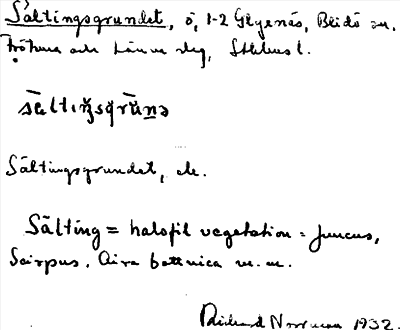 Sältingsgrundet, ö, 1-2 Glyenäs, Blidö sn,
Frötuna och Länna slg, Sthlms l.
sältiŋsgrŭnə
Sältingsgrundet, ek.
Sälting = halofil vegetation = Juncus,
Scirpus. Aira bottnica m.m.
Rickard Norrman 1932.